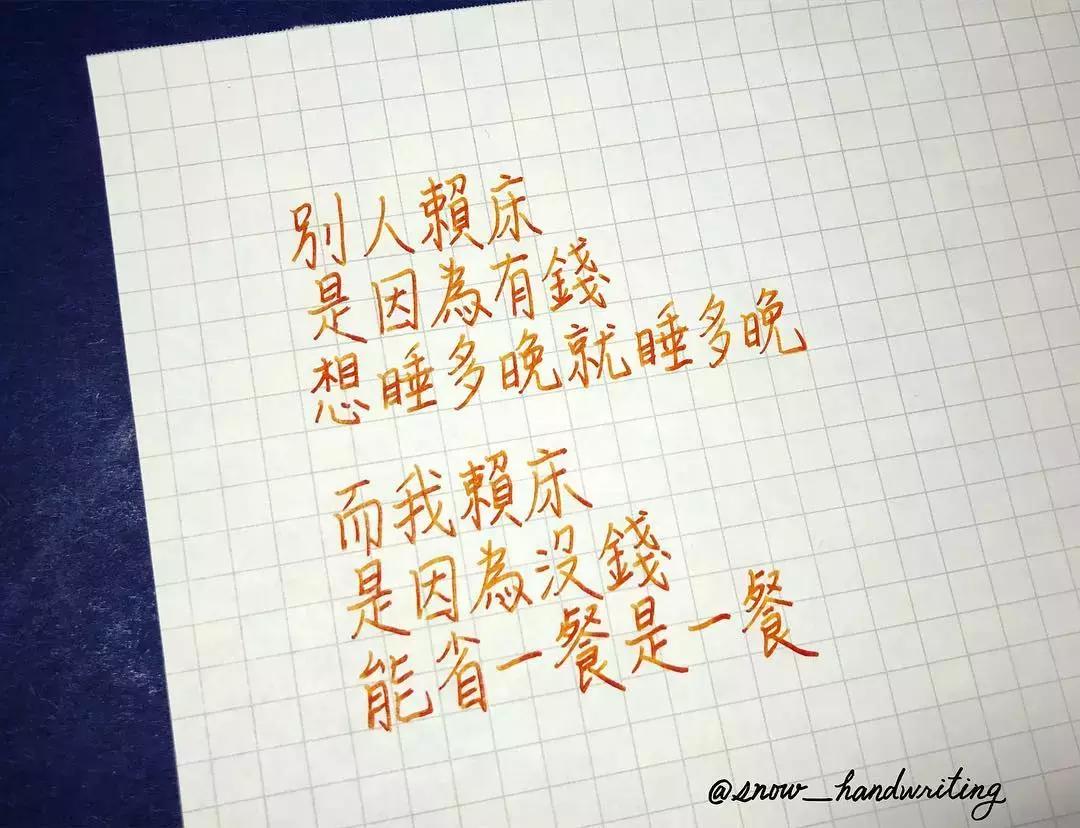 別人賴床
是因為有錢
想睡多晚就睡多晚
而我賴床
是因為沒錢
能省一餐是一餐
@snow_handwriting